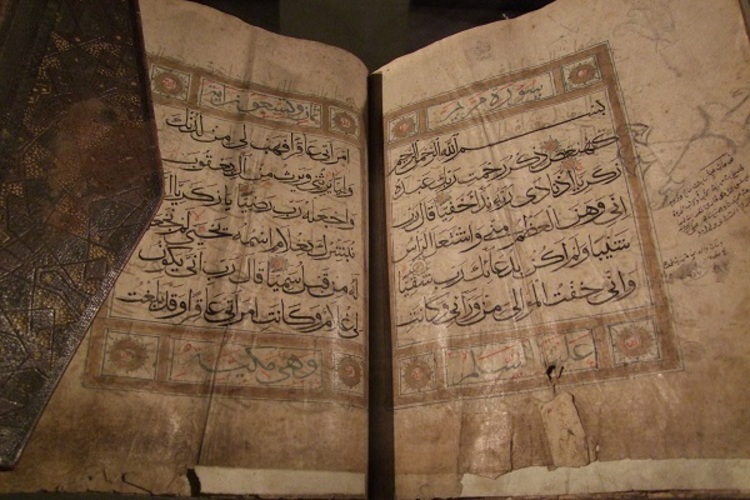 سورة مريم
بسم الله الرحمن الرحيم
كهيعص ذكر رحمت ربك عبده
زكريا اذ نادى ربه نداء خفيا قال رب
انى وهن العظم منى واشتعل الراس
شيبا ولم اكن بدعائك رب شقيا
وانى خفت الموالى من ورائى وكانت
عليها السلام
ثمان وتسعون اية
امراتى عاقرا فهب لى من لدنك
وليا يرثنى ويرث من ال يعقوب
واجعله رب رضيا يا زكريا انا
نبشرك بغلام اسمه يحيى لم نجعل
له من قبل سميا قال رب انى يكون
لى غلام وكانت امراتى عاقرا وقد بلغت
وهى مكية